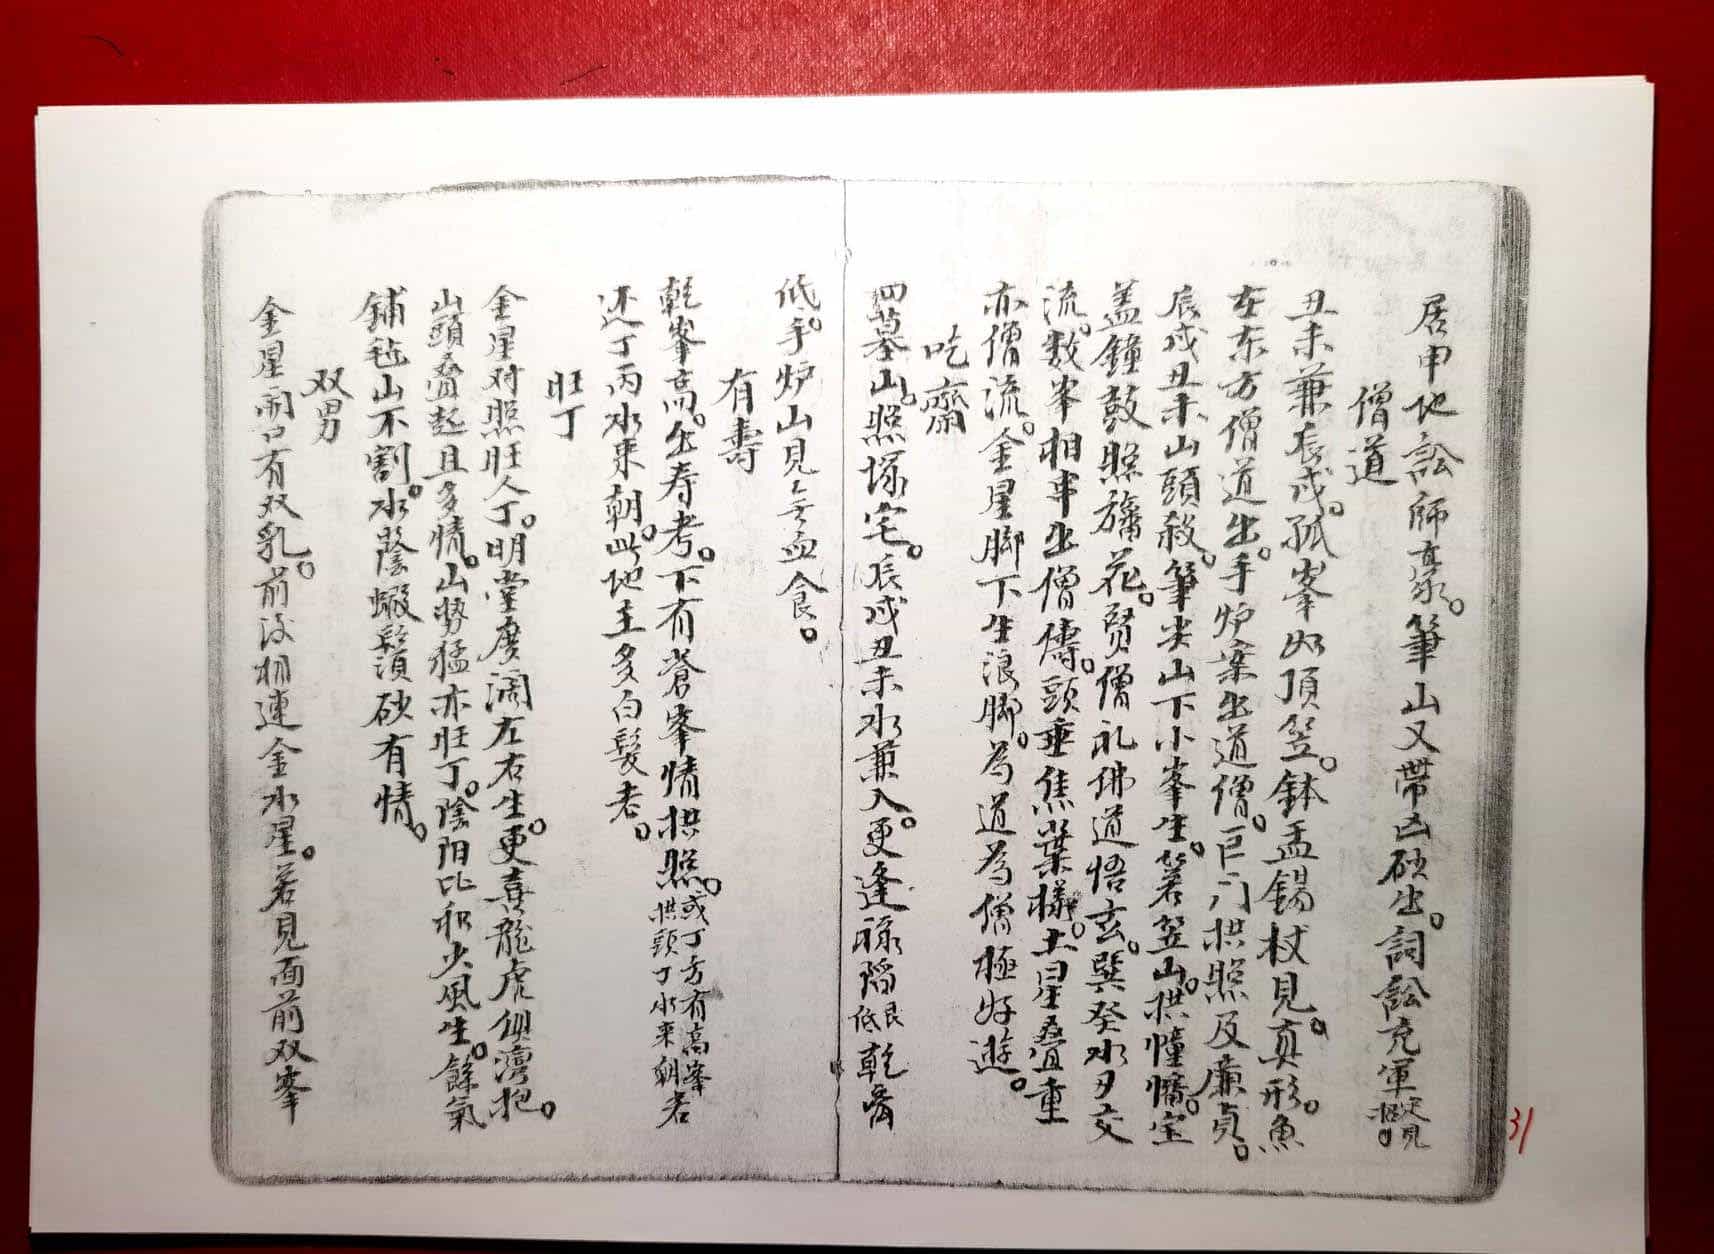 居申地訟師豪。筆山又帶凶砂出。詞訟充軍定見招。
僧道
丑未兼辰戌。孤峯如頂笠。鉢盂錫杖見真形。魚
在东方僧道出。手炉案出道僧。巨门拱照及廉貞。
辰戌丑未山頭殺。筆尖山下小峯生。箬笠山。拱幢幡。宝
盖鐘鼓照旛花。賢僧礼佛道悟玄。巽癸水交
流。数峯相串出僧傳。頭垂焦葉樣。土星叠重
亦僧流。金星脚下生浪脚。為道為僧極好遊。
吃齋
四墓山。照塚宅。辰戌丑未水兼入。更逢禄陷艮低乾
低。手炉山見無血食。
有壽
乾峯高。出寿考。下有蒼峯情拱照。或丁方有高峯拱頭丁水來朝者
还丁丙水來朝。此地主多白髮老。
旺丁
金星对照旺人丁。明堂廣濶左右生。更喜龍虎俱灣抱。
山頭叠起且多情。山势猛亦旺丁。陰阳比和少風生。餘氣
鋪毡山不割水。蔭蝦鬚砂有情。
双男
金星開口有双乳。前後相連金水星。若見面前双峯
31